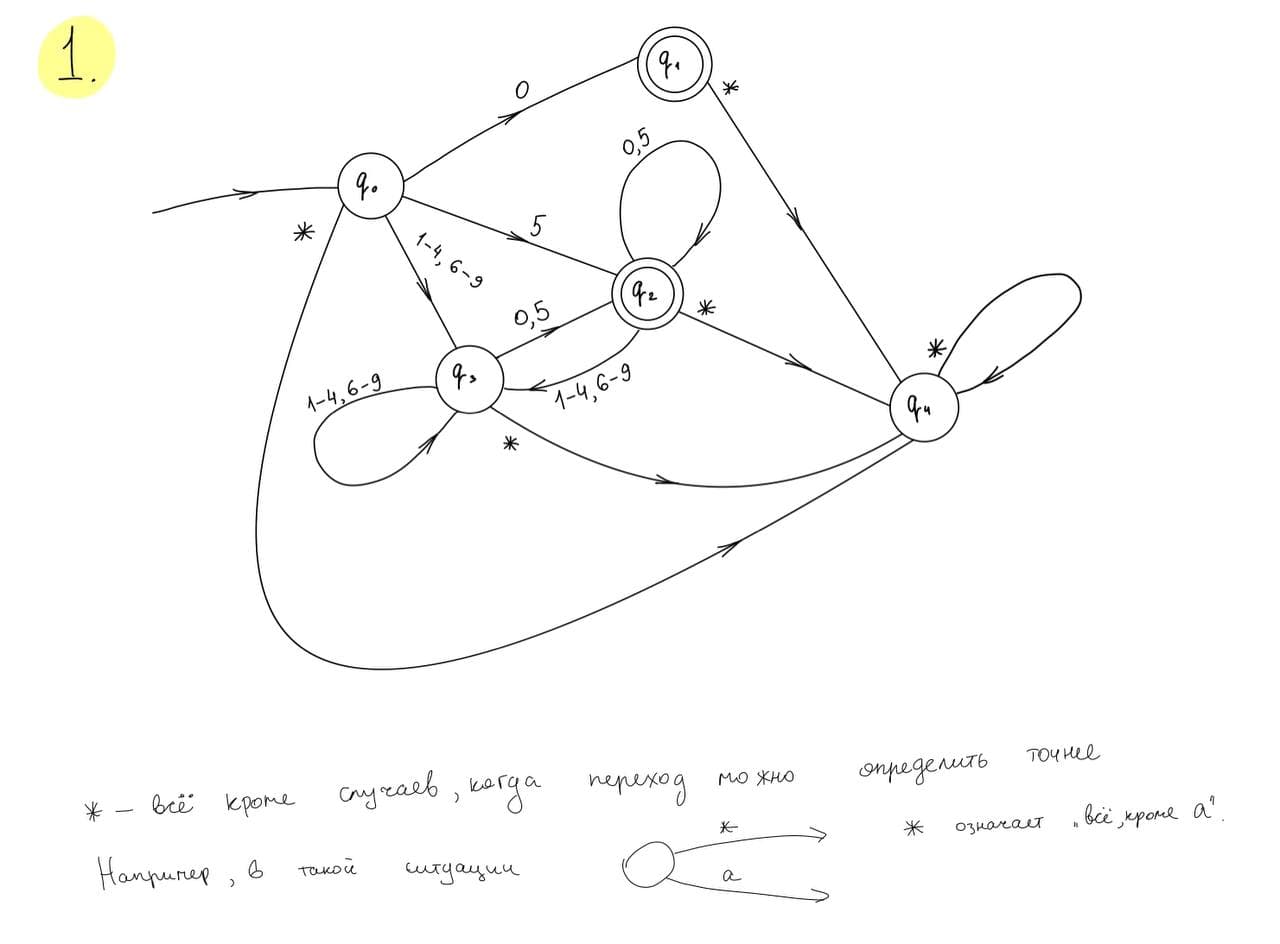 1.
0
q₁
*
0,5
q₀
*
5
1-4, 6-9
0,5
q₂
*
*
1-4, 6-9
q₃
1-4, 6-9
q₄
*
* – всё кроме случаев, когда переход можно определить точнее
Например, в такой ситуации * a * означает „всё, кроме a".